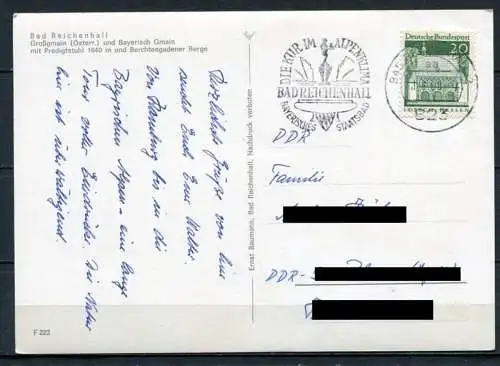 Bad Reichenhall
Großgmain (Österr.) und Bayerisch Gmain
mit Predigtstuhl 1640 m und Berchtesgadener Berge
Herzlichste Grüße von hier
sendet Euch Euer Walter.
Von Hamburg bis in die
Bayrischen Alpen - eine lange
Tour voller Eindrücke. Die Natur
hier ist überwältigend.
F 223
Ernst Baumann, Bad Reichenhall, Nachdruck verboten
DIE KUR IM ALPENKLIMA
BAD REICHENHALL
BAYERISCHES STAATSBAD
Deutsche Bundespost
20
823
DDR
Familie
DDR-